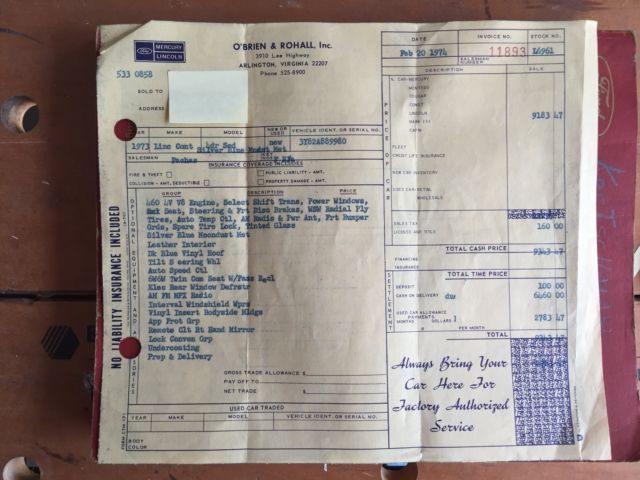 MERCURY
LINCOLN
O'BRIEN & ROHALL, Inc.
3910 Lee Highway
ARLINGTON, VIRGINIA 22207
Phone 525-8900
533 0858
SOLD TO
ADDRESS
DATE
INVOICE NO.
STOCK NO.
Feb 20 1974
11893
L6961
SALESMAN NUMBER
DESCRIPTION
SALE
CAR-MERCURY
MONTEGO
COUGAR
COMET
LINCOLN
9183 47
MARK III
CAPRI
FLEET
CREDIT LIFE INSURANCE
NEW CAR INVENTORY
USED CAR-RETAIL
WHOLESALE
PRICE OF CAR
YEAR
MAKE
MODEL
NEW OR USED
VEHICLE IDENT. OR SERIAL NO.
1973 Linc Cont 4dr Sed
new
3Y82A889980
Silver Blue Mndst Met
SALESMAN
KEY NOS.
INSURANCE COVERAGE INCLUDES
FIRE & THEFT
PUBLIC LIABILITY - AMT.
COLLISION - AMT. DEDUCTIBLE
PROPERTY DAMAGE - AMT.
GROUP
DESCRIPTION
PRICE
460 4V V8 Engine, Select Shift Trans, Power Windows,
6Wk Seat, Steering & Frt Disc Brakes, WSW Radial Ply
Tires, Auto Temp Ctl, AM Radio & Pwr Ant, Frt Bumper
Grds, Spare Tire Lock, Tinted Glass
Silver Blue Moondust Met
Leather Interior
Dk Blue Vinyl Roof
Tilt Steering Whl
Auto Speed Ctl
6W6W Twin Com Seat W/Pass Recl
Elec Rear Window Defrstr
AM FM MPX Radio
Interval Windshield Wprs
Vinyl Insert Bodyside Mldgs
App Prot Grp
Remote Clt Rt Hand Mirror
Lock Conven Grp
Undercoating
Prep & Delivery
OPTIONAL EQUIPMENT AND ACCESSORIES
NO LIABILITY INSURANCE INCLUDED
SALES TAX
160 00
LICENSE AND TITLE
TOTAL CASH PRICE
9343 47
FINANCING
INSURANCE
TOTAL TIME PRICE
SETTLEMENT
DEPOSIT
100 00
CASH ON DELIVERY
dw
6460 00
USED CAR ALLOWANCE
PAYMENTS
2783 47
MONTHS
DOLLARS
PER MONTH
TOTAL
GROSS TRADE ALLOWANCE $
PAY OFF TO
NET TRADE $
USED CAR TRADED
YEAR
MAKE
MODEL
VEHICLE IDENT. OR SERIAL NO.
BODY
COLOR
Always Bring Your
Car Here For
Factory Authorized
Service